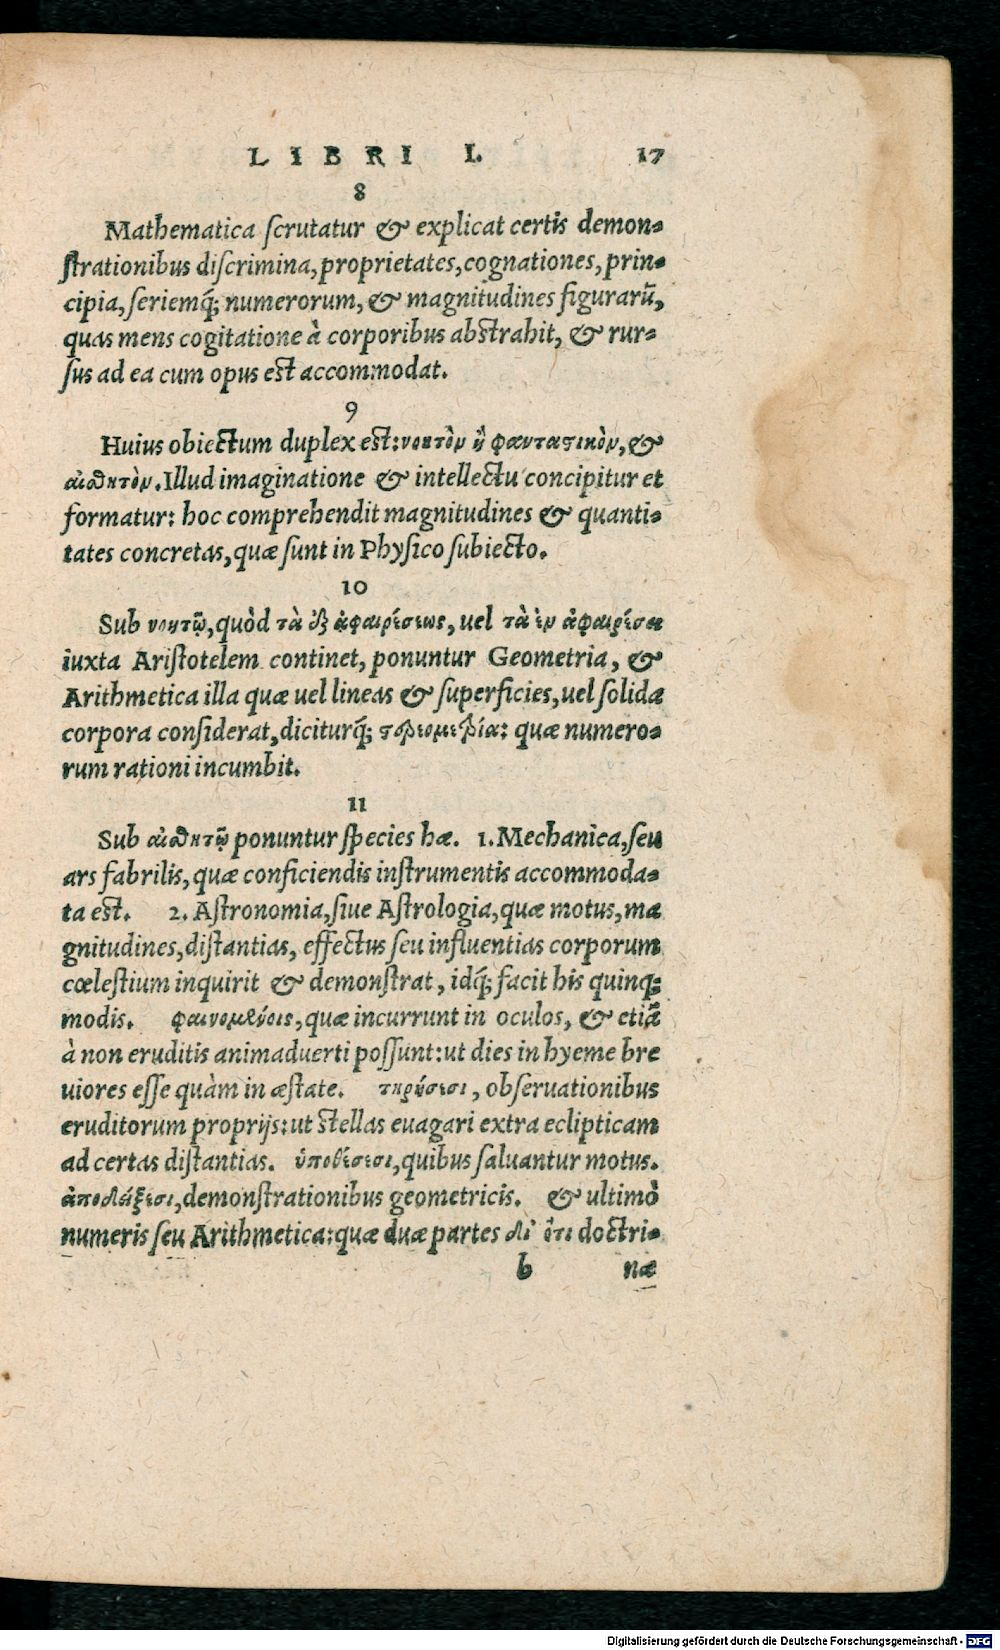 LIBRI I. 17
8
Mathematica ſcrutatur & explicat certis demon-
ſtrationibus diſcrimina, proprietates, cognationes, prin-
cipia, ſeriemq́; numerorum, & magnitudines figurarũ,
quas mens cogitatione à corporibus abſtrahit, & rur-
ſus ad ea cum opus eſt accommodat.
9
Huius obiectum duplex eſt: νοητὸν ἢ φανταστικὸν, &
αἰσθητὸν. Illud imaginatione & intellectu concipitur et
formatur: hoc comprehendit magnitudines & quanti-
tates concretas, quæ ſunt in Phyſico ſubiecto.
10
Sub νοητῷ, quòd τὰ ἐξ ἀφαιρέσεως, uel τὰ ἐν ἀφαιρέσει
iuxta Ariſtotelem continet, ponuntur Geometria, &
Arithmetica illa quæ uel lineas & ſuperficies, uel ſolida
corpora conſiderat, diciturq́; στερεομετρία: quæ numero-
rum rationi incumbit.
11
Sub αἰσθητῷ ponuntur ſpecies hæ. 1. Mechanica, ſeu
ars fabrilis, quæ conficiendis inſtrumentis accommoda-
ta eſt. 2. Aſtronomia, ſiue Aſtrologia, quæ motus, ma
gnitudines, diſtantias, effectus ſeu influentias corporum
cœleſtium inquirit & demonſtrat, idq́; facit his quinq;
modis. φαινομένοις, quæ incurrunt in oculos, & etiã
à non eruditis animaduerti poſſunt: ut dies in hyeme bre
uiores eſſe quàm in æſtate. τηρήσεσι, obſeruationibus
eruditorum proprijs: ut ſtellas euagari extra eclipticam
ad certas diſtantias. ὑποθέσεσι, quibus ſaluantur motus.
ἀποδείξεσι, demonſtrationibus geometricis. & ultimò
numeris ſeu Arithmetica: quæ duæ partes δι' ὅτι doctri-
b næ
Digitalisierung gefördert durch die Deutsche Forschungsgemeinschaft - DFG